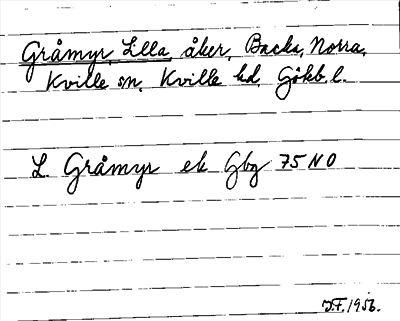 Gråmyr, Lilla, åker, Backa, Norra,
Kville sn, Kville hd, Gökb. l.
L. Gråmyr ek Gbg 75 NO
J.F. 1956.